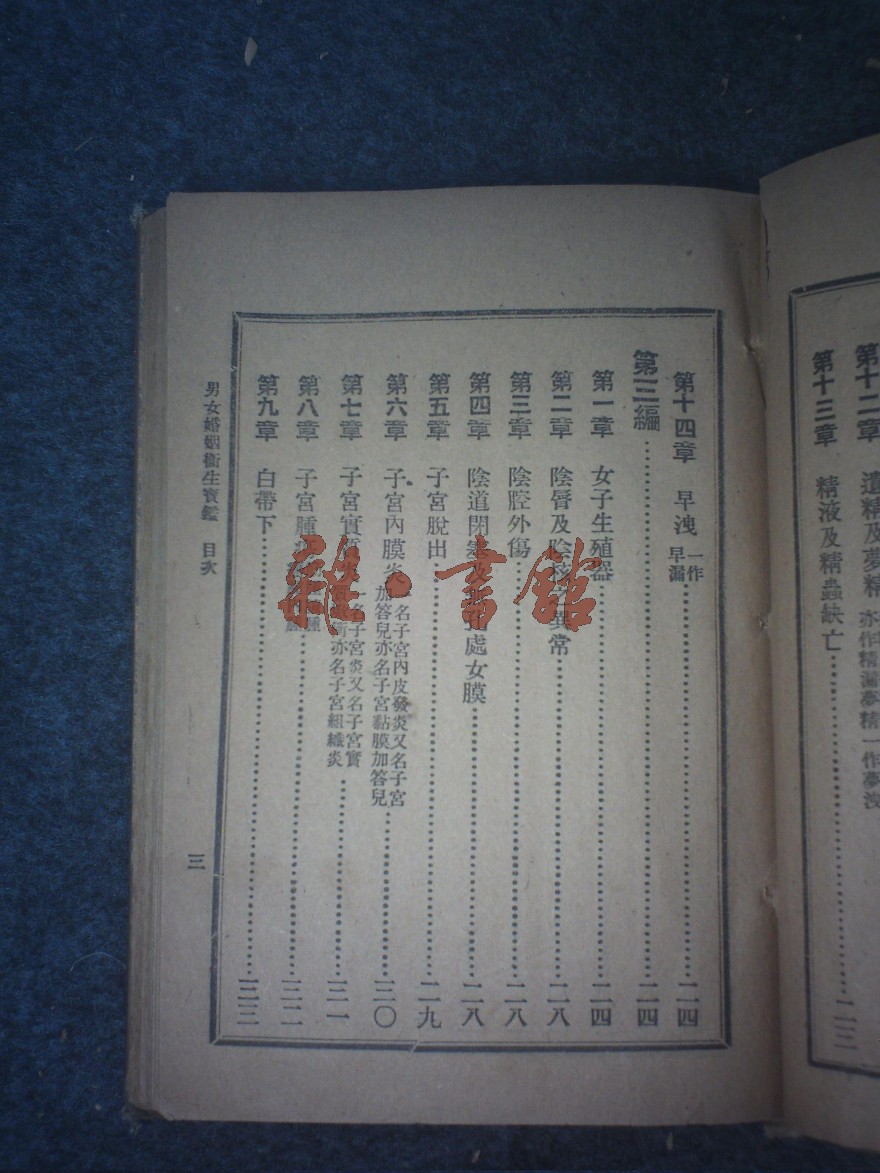 第十二章 遺精及夢精 亦作精漏夢精一作夢洩
第十三章 精液及精蟲缺亡 二三
第十四章 早洩 一作早漏 二四
第三編 二四
第一章 女子生殖器 二四
第二章 陰脣及陰 異常 二八
第三章 陰腔外傷 二八
第四章 陰道閉 及 處女膜 二八
第五章 子宮脫出 二九
第六章 子宮內膜炎 一名子宮內皮發炎又名子宮加答兒亦名子宮黏膜加答兒 三〇
第七章 子宮實 一名子宮炎又名子宮實 衝亦名子宮組織炎 三一
第八章 子宮腫 三二
第九章 白帶下 三三
男女婚姻衞生寶鑑 目次
三
雜·書館